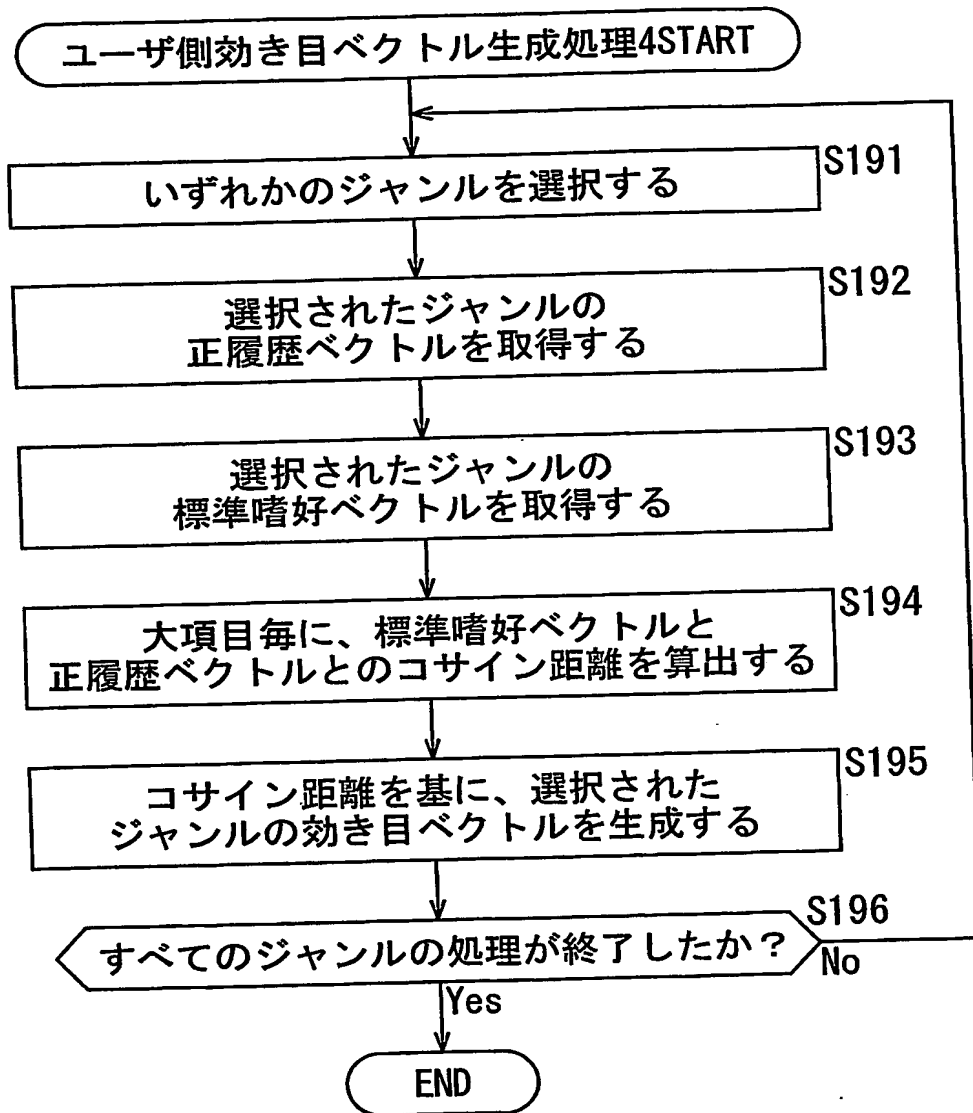 ユーザ側効き目ベクトル生成処理4START
S191
いずれかのジャンルを選択する
S192
選択されたジャンルの
正履歴ベクトルを取得する
S193
選択されたジャンルの
標準嗜好ベクトルを取得する
S194
大項目毎に、標準嗜好ベクトルと
正履歴ベクトルとのコサイン距離を算出する
S195
コサイン距離を基に、選択された
ジャンルの効き目ベクトルを生成する
S196
すべてのジャンルの処理が終了したか？
No
Yes
END